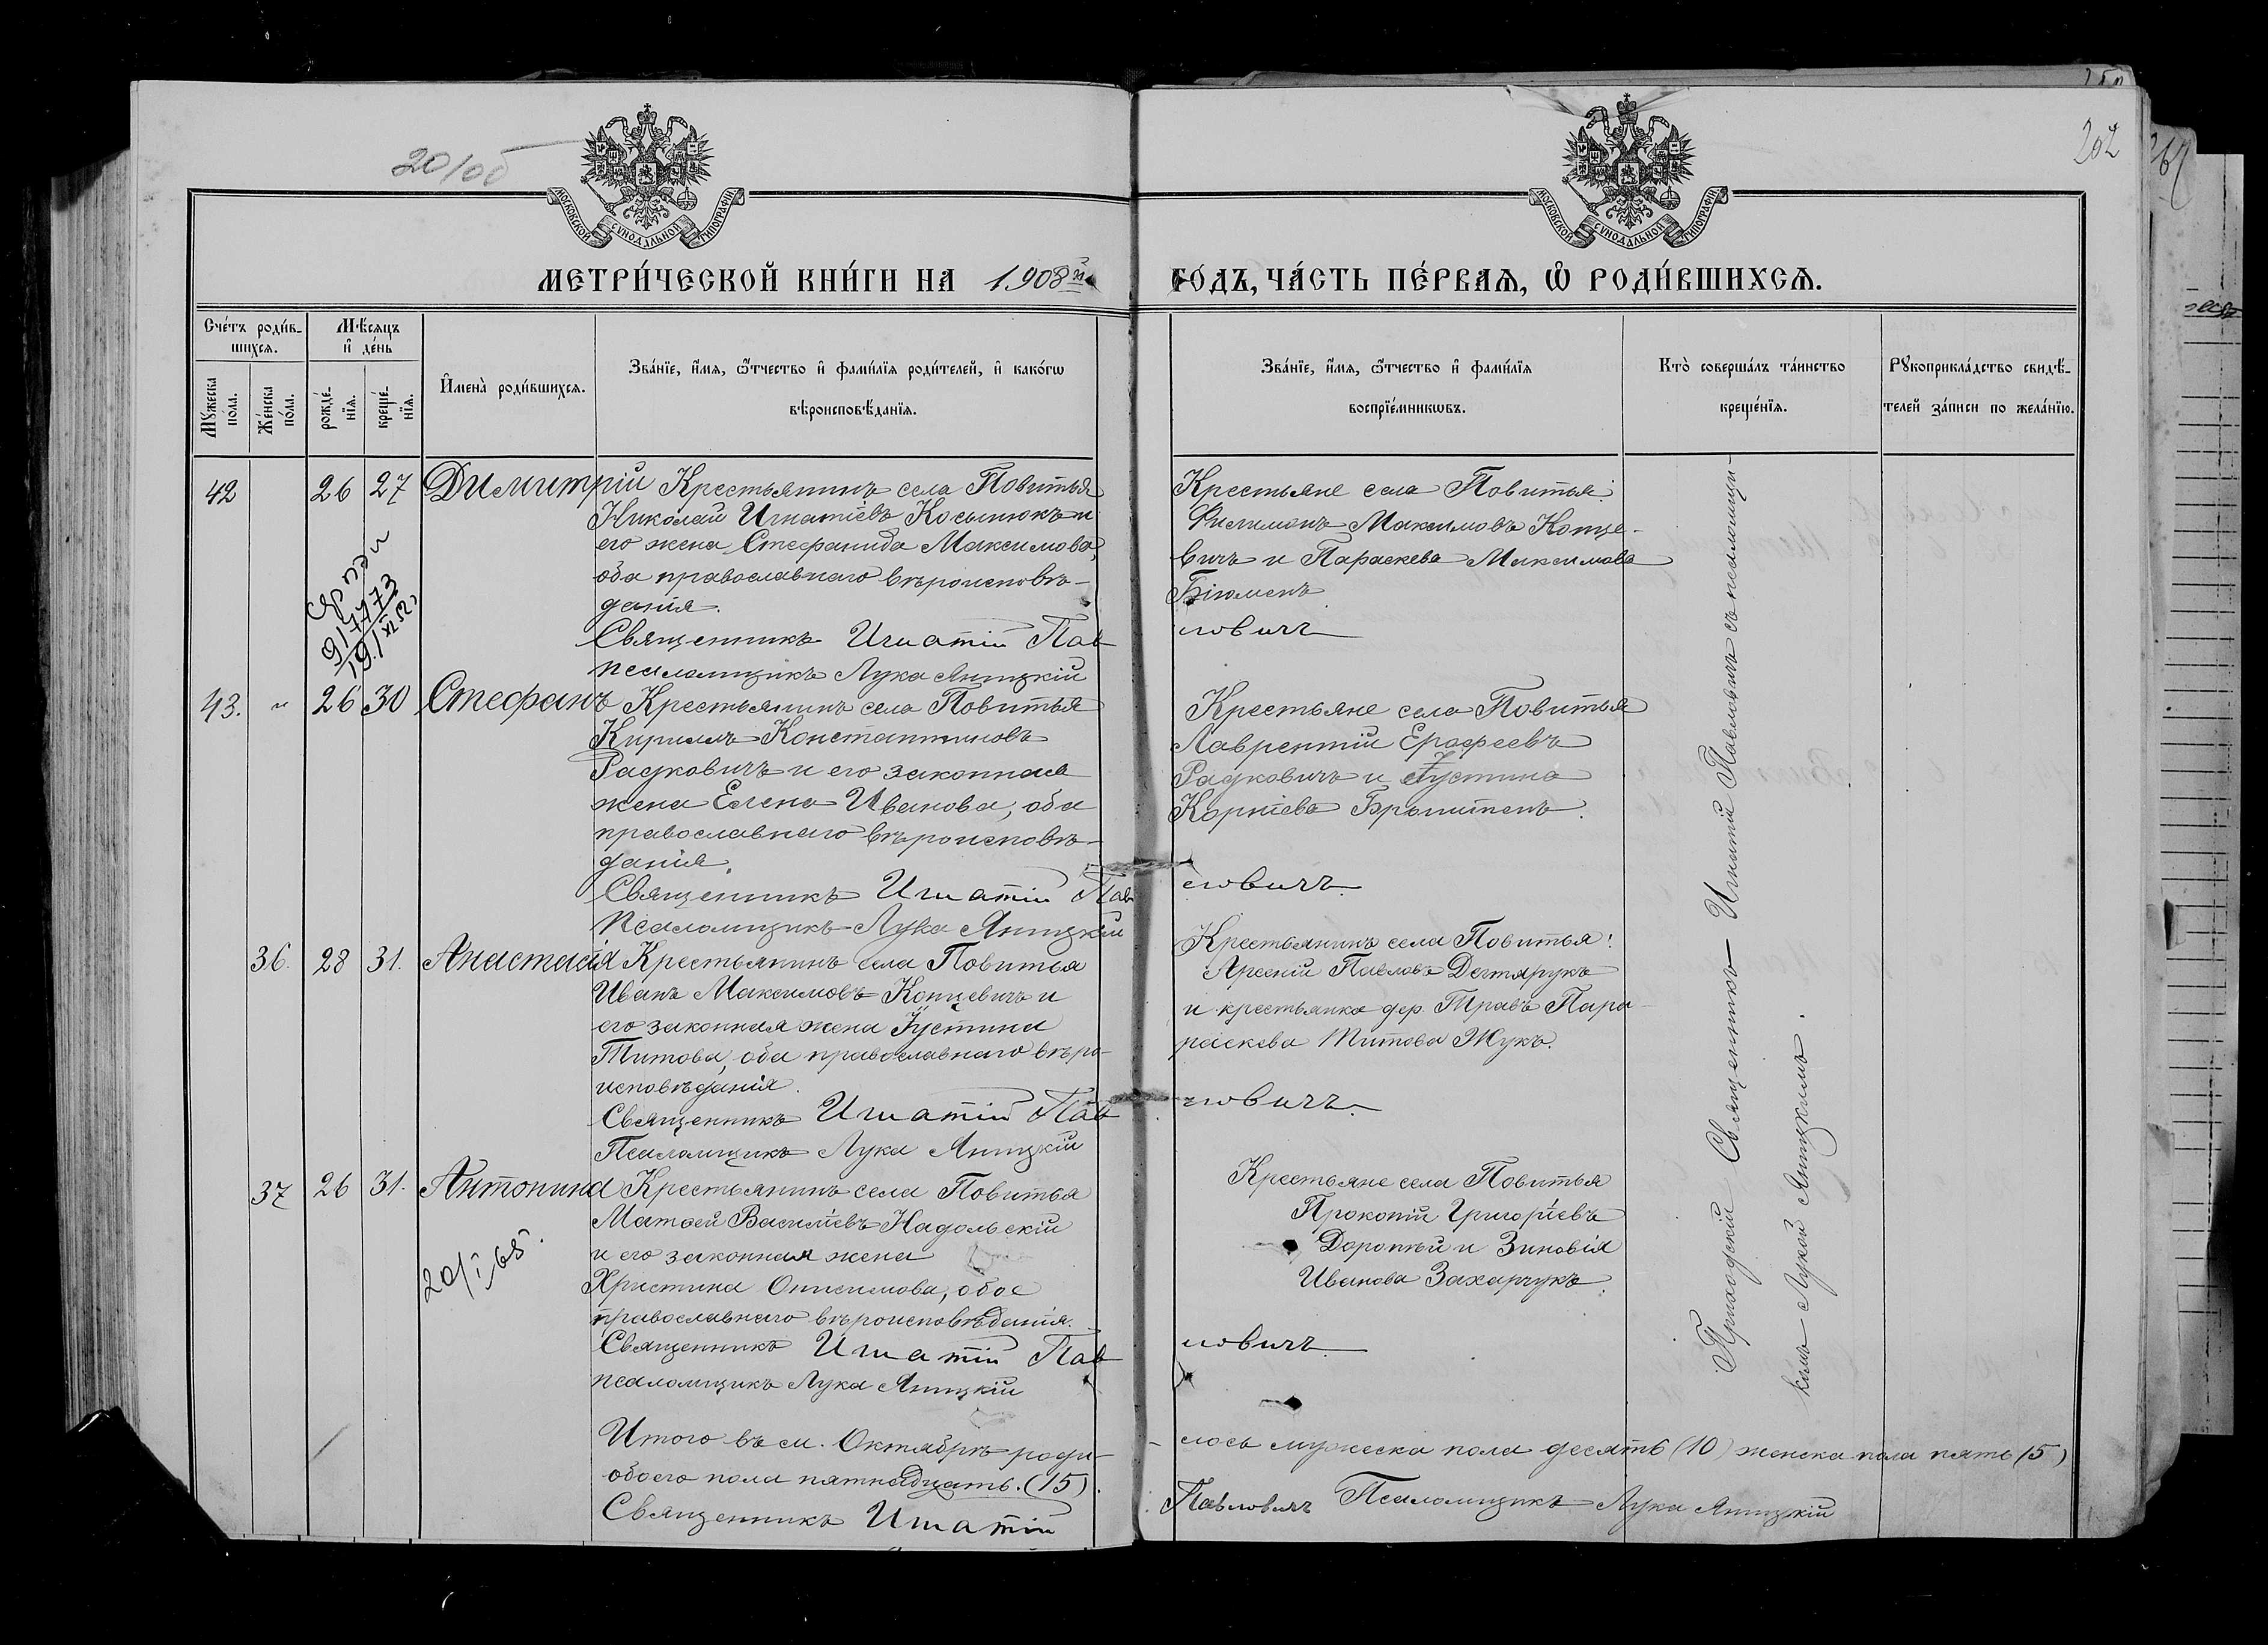 20/об
202
МОСКОВСКОЙ СѴНОДАЛЬНОЙ ТИПОГРАФІИ
МОСКОВСКОЙ СѴНОДАЛЬНОЙ ТИПОГРАФІИ
МЕТРИ́ЧЕСКОЙ КНИ́ГИ НА 1908й
ГО́ДЪ, ЧА́СТЬ ПЕ́РВАѦ, Ѡ҆ РОДИ́ВШИХСѦ.
Сче́тъ роди́в-
шихсѧ.
Мѣ́сѧцъ
и҆ де́нь
Мꙋ́жеска
пола.
Же́нска
по́ла.
рожде́-
нїѧ.
креще́-
нїѧ.
И҆мена̀ роди́вшихсѧ.
Зва́нїе, и҆́мѧ, ѻ҆́тчество и҆ фами́лїѧ роди́телей, и҆ како́гѡ
вѣроисповѣ́данїѧ.
Зва́нїе, и҆́мѧ, ѻ҆́тчество и҆ фами́лїѧ
воспрїе́мникѡвъ.
Кто̀ соверша́лъ та́инство
креще́нїѧ.
Рꙋкоприкла́дство свидѣ́-
телей за́писи по жела́нїю.
42 26 27 Димитрій Крестьянинъ села Повитья
Николай Игнатіевъ Косынюкъ и
его жена Стефанида Максимова,
оба православнаго вѣроисповѣ-
данія.
Священникъ Игнатій Пав
псаломщикъ Лука Яницкій
Крестьяне села Повитья:
Филимонъ Максимовъ Конце-
вичъ и Параскева Максимова
ловичъ
43. " 26 30 Стефанъ Крестьянинъ села Повитья
Кириллъ Константиновъ
Радковичъ и его законная
жена Елена Иванова, оба
православнаго вѣроисповѣ-
данія.
Священникъ Игнатій Пав
Псаломщикъ Лука Яницкій
Крестьяне села Повитья
Лаврентій Ерофеевъ
Радковичъ и Іустина
Корніева
ловичъ.
36. 28 31. Анастасія Крестьянинъ села Повитья
Иванъ Максимовъ Концевичъ и
его законная жена Іустина
Титова, оба православнаго вѣро-
исповѣданія.
Священникъ Игнатій Пав
Псаломщикъ Лука Яницкій
Крестьянинъ села Повитья:
Арсеній Павловъ Дегтярукъ
и крестьянка дер. Травъ Пара-
раскева Титова Жукъ.
ловичъ.
37 26 31. Антонина Крестьянинъ села Повитья
Матѳей Василіевъ Надольскій
и его законная жена
Христина Онисимова, обое
православнаго вѣроисповѣданія.
Священникъ Игнатій Пав
псаломщикъ Лука Яницкій
20/I 65.
Крестьяне села Повитья
Прокопій Григоріевъ
Доропѣй и Зиновія
Иванова Захарчукъ.
ловичъ
Приходскій Священникъ Игнатій Павловичъ съ псаломщи-
комъ Лукой Яницкимъ.
Итого въ м. Октябрѣ роди-
лось мужеска пола десять (10) женска пола пять (5)
обоего пола пятнадцать. (15).
Священникъ Игнатій
Павловичъ Псаломщикъ Лука Яницкій